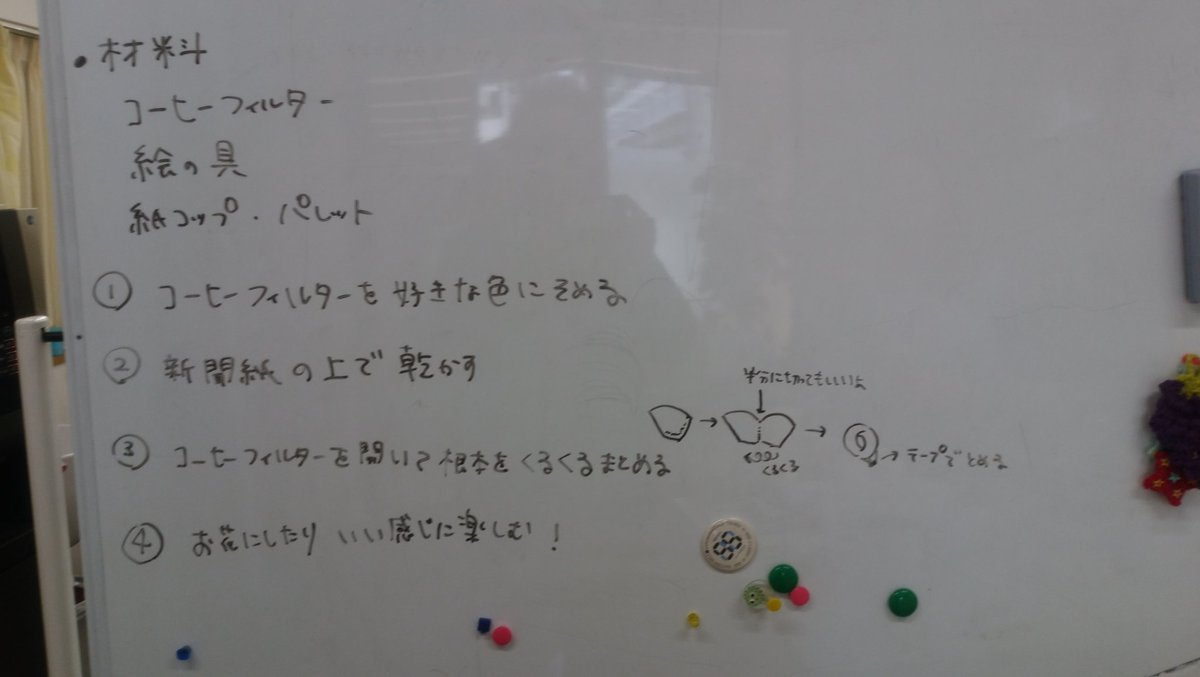 ・材料
コーヒーフィルター
絵の具
紙コップ・パレット
① コーヒーフィルターを好きな色にそめる
② 新聞紙の上で乾かす
半分に切ってもいいよ
③ コーヒーフィルターを開いて根本をくるくるまとめる
くるくる
→テープでとめる
④ お花にしたりいい感じに楽しむ!